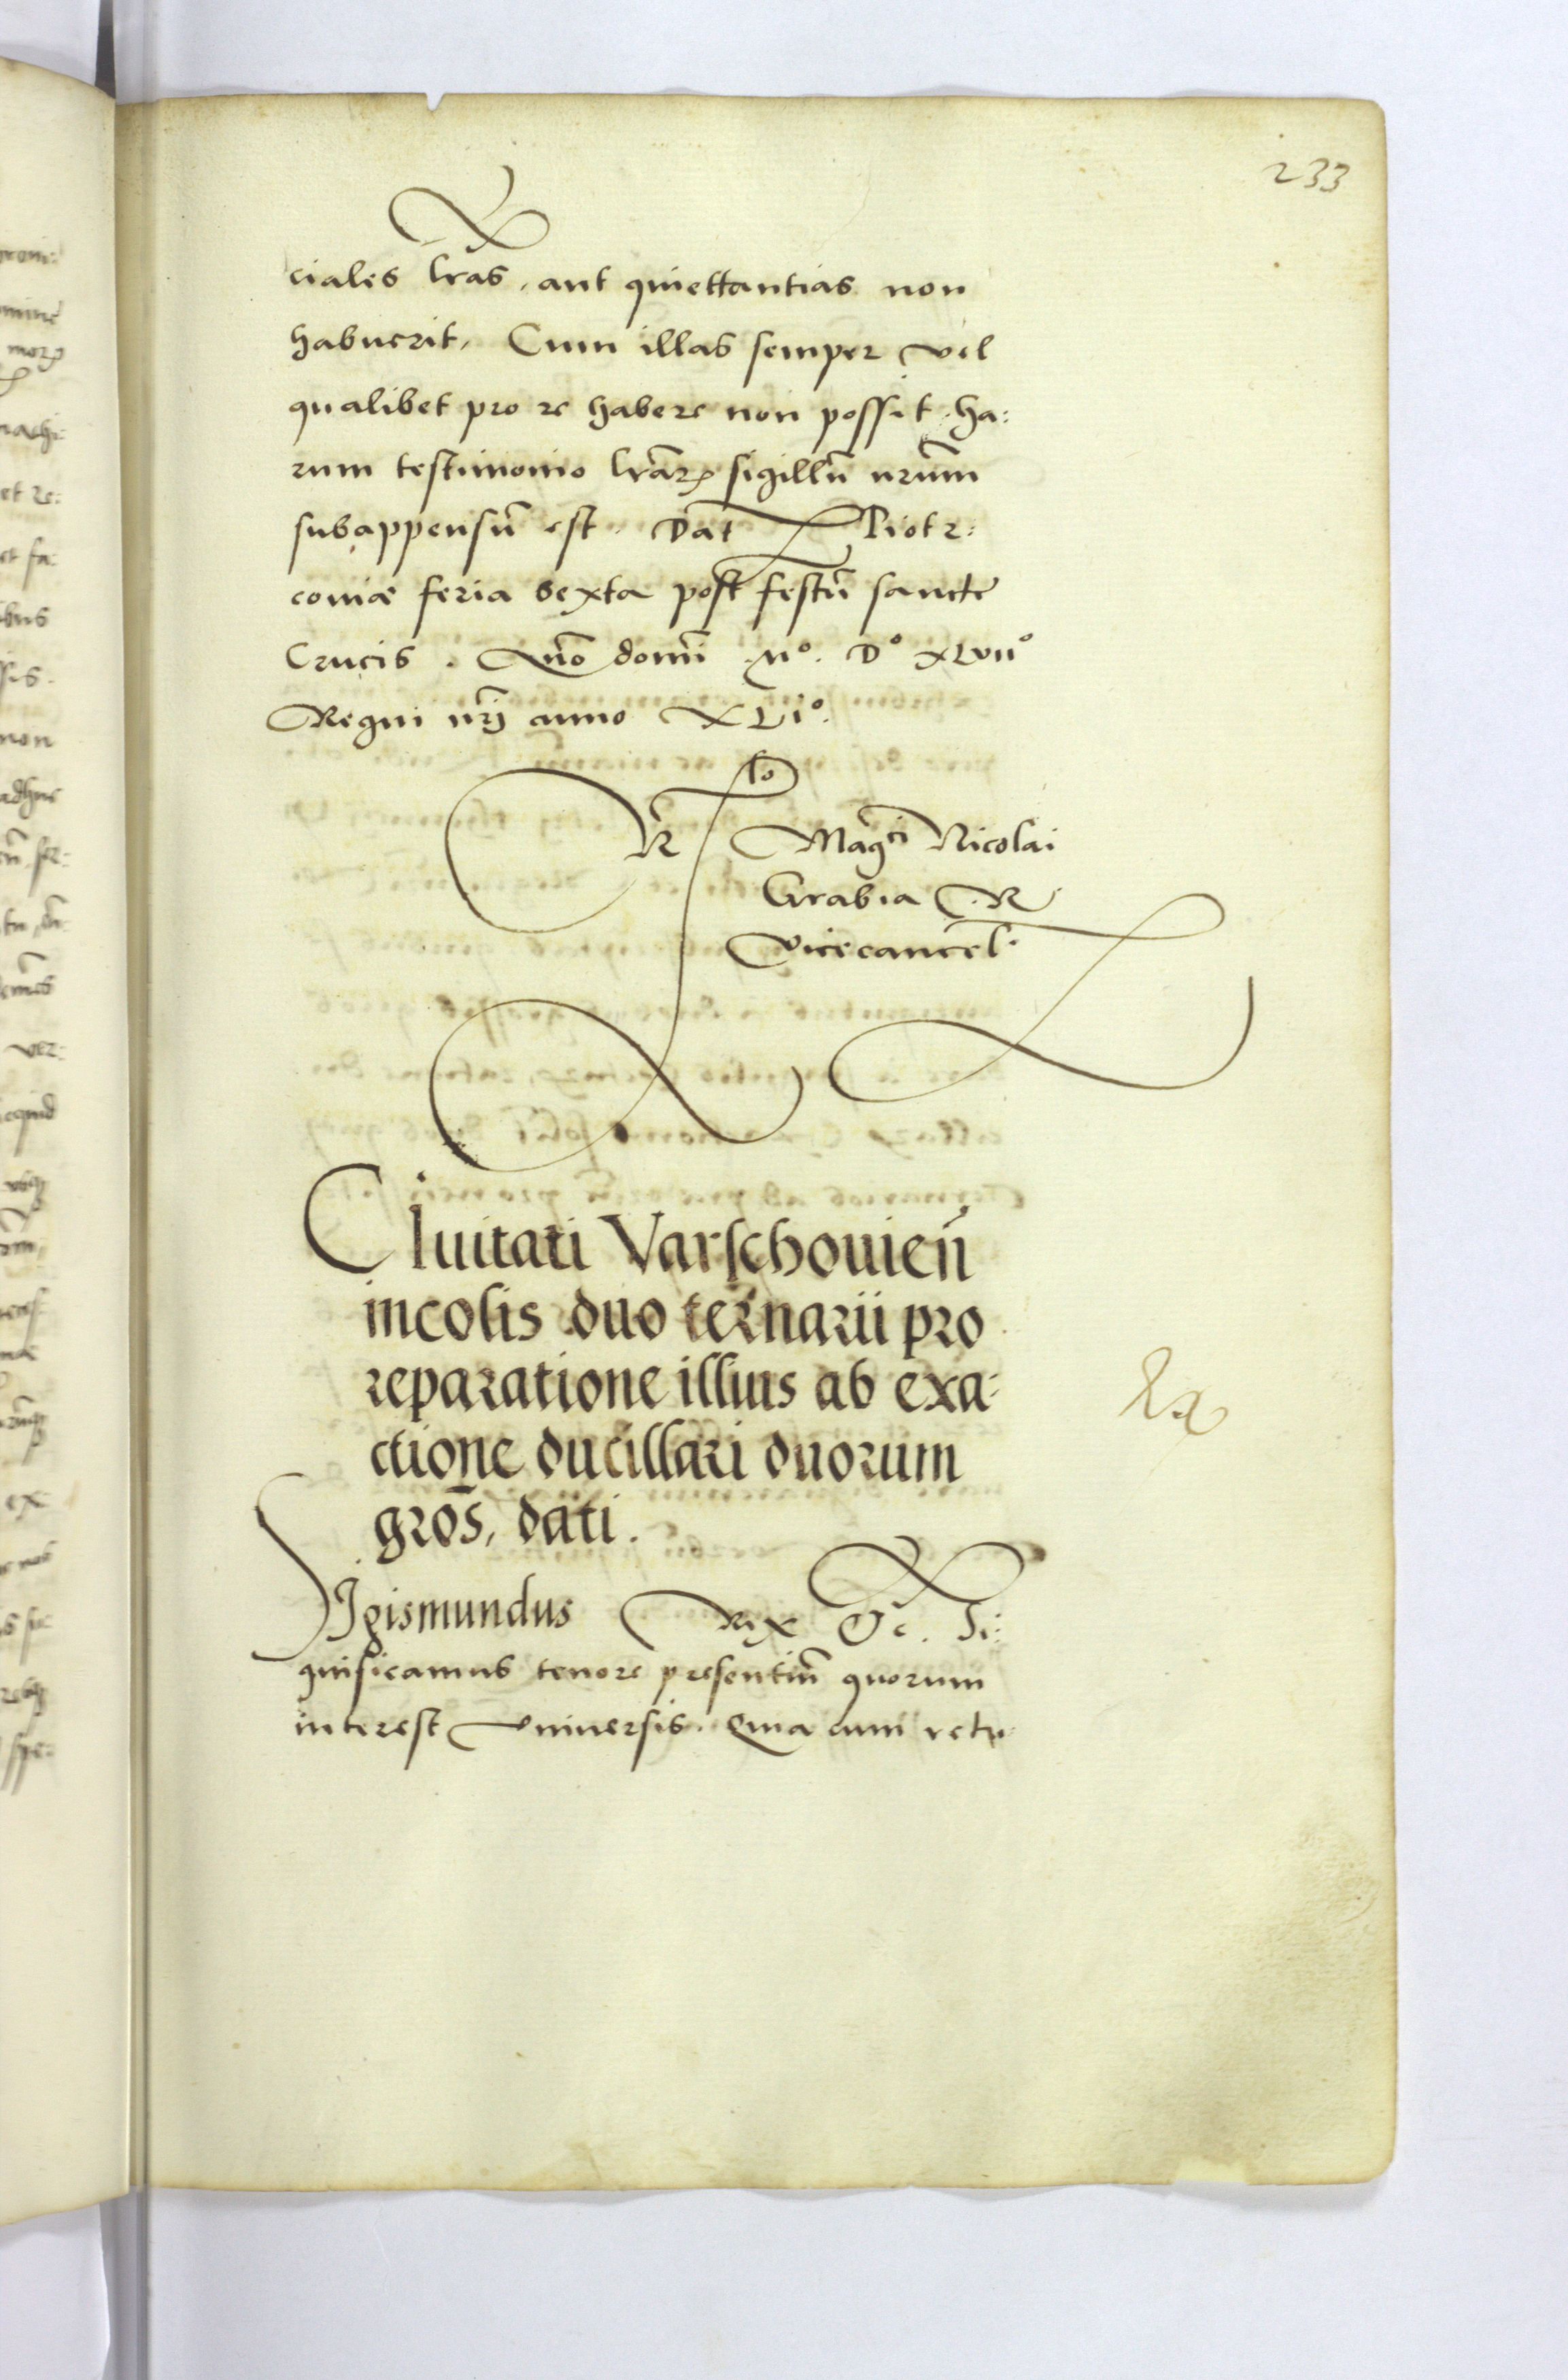 233
ciales lr̃as, aut quiettantias non
habuerit, Cum illas semper vel
qualibet pro re habere non possit. ha:
rum testimonio lr̃arꝝ sigillũ nr̃um
subappensũ est. Dat Piotr:
coviæ feria sexta post festũ sanctę
Crucis. Año domĩ .Mº. Dº XLVIIº
Regni nr̃j anno XLIº.
Rlo Magci Nicolai
Grabia .R
Vicecancel.
CIuitati Varschouieñ
incolis duo ternarii pro
reparatione illius ab exa:
ctione ducillari duorum
gros̃, dati.
SIgismundus Rex &c. Si:
gnificamus tenore presentiũ quorum
interest Vniversis. Quia cum vetu: